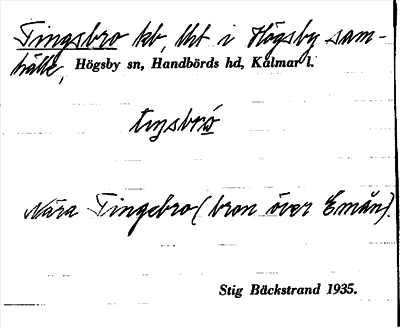 Tingsbro kb, lht i Högsby sam-
hälle, Högsby sn, Handbörds hd, Kalmar l.
tiŋsbró
Nära Tingebro (bron över Emån).
Stig Bäckstrand 1935.